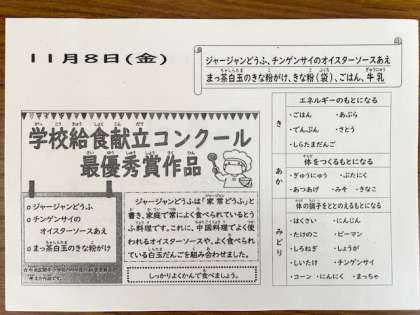 11月8日(金)
ジャージャンどうふ、チンゲンサイのオイスターソースあえ
まっ茶白玉のきな粉がけ、きな粉(袋)、ごはん、牛乳
学校給食献立コンクール
最優秀賞作品
○ジャージャンどうふ
○チンゲンサイの
オイスターソースあえ
○まっ茶白玉のきな粉がけ
ジャージャンどうふは「家常どうふ」と
書き、家庭で常によく食べられているとう
ふ料理です。これに、中国料理でよく使
われるオイスターソースや、よく食べられ
ている白玉だんごを組み合わせました。
しっかりよくかんで食べましょう。
き
エネルギーのもとになる
・ごはん ・あぶら
・でんぷん ・さとう
・しらたまだんご
あか
体をつくるもとになる
・ぎゅうにゅう ・ぶたにく
・あつあげ ・みそ ・きなこ
みどり
体の調子をととのえるもとになる
・はくさい ・にんじん
・たけのこ ・ピーマン
・しろねぎ ・しょうが
・しいたけ ・チンゲンサイ
・コーン ・にんにく ・まっちゃ